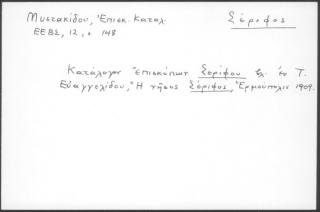 Μυστακίδου, Ἐπισκ. Καταλ.
Σέριφος
ΕΕΒΣ, 12, σ. 148
Κατάλογον ἐπισκόπων Σερίφου βλ. ἐν Τ.
Εὐαγγελίδου, Ἡ νῆσος Σέριφος, Ἑρμούπολις 1909.